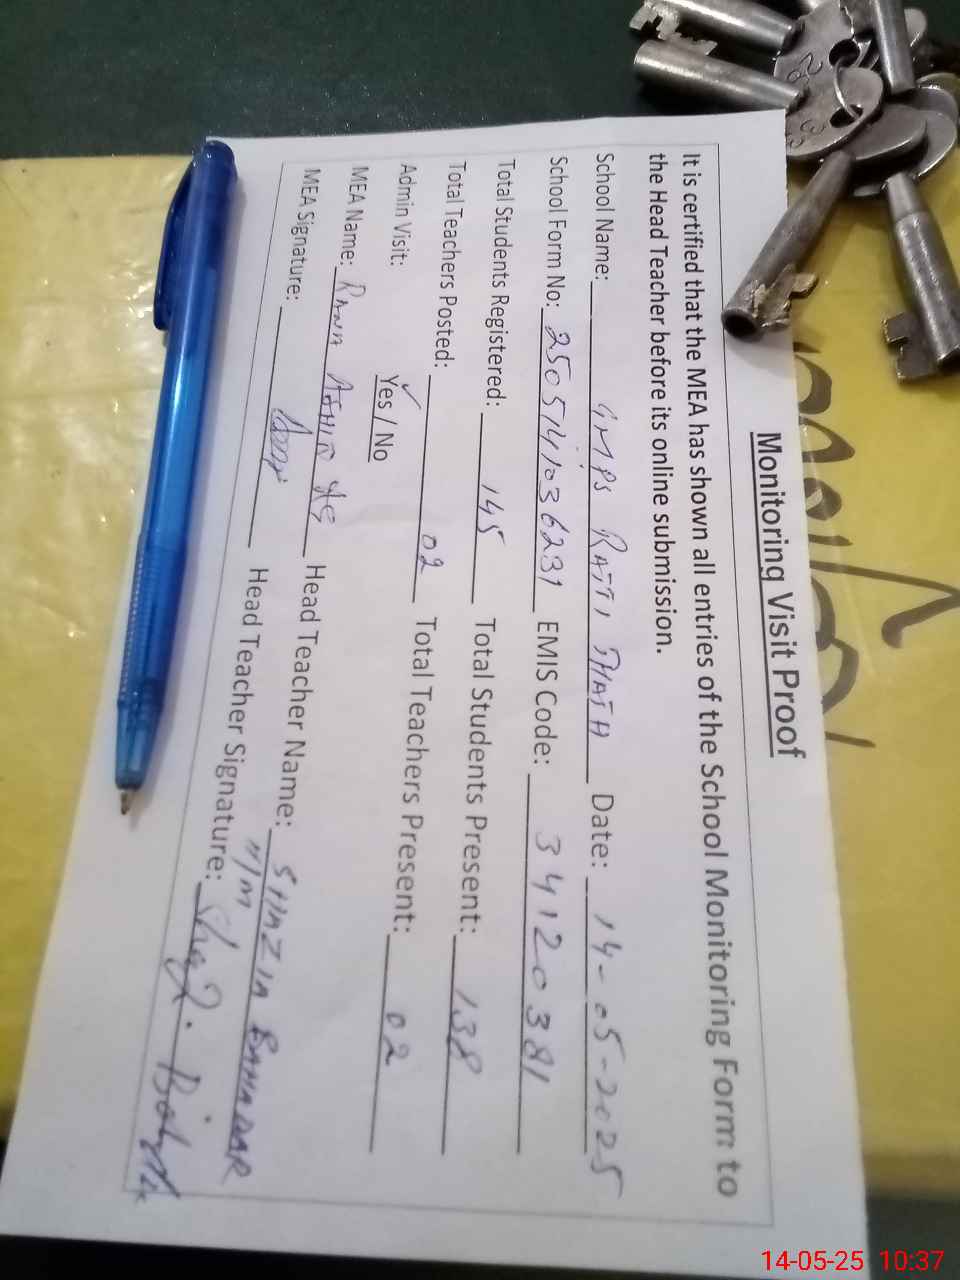 Monitoring Visit Proof
It is certified that the MEA has shown all entries of the School Monitoring Form to
the Head Teacher before its online submission.
School Name: GMPS RATTI THATH Date: 14-05-2025
School Form No: 2505141036231 EMIS Code: 34120381
Total Students Registered: 145 Total Students Present: 138
Total Teachers Posted: 02 Total Teachers Present: 02
Admin Visit: Yes / No
MEA Name: RANA Head Teacher Name: SHAZIA BAHADAR
MEA Signature: Head Teacher Signature:
14-05-25 10:37